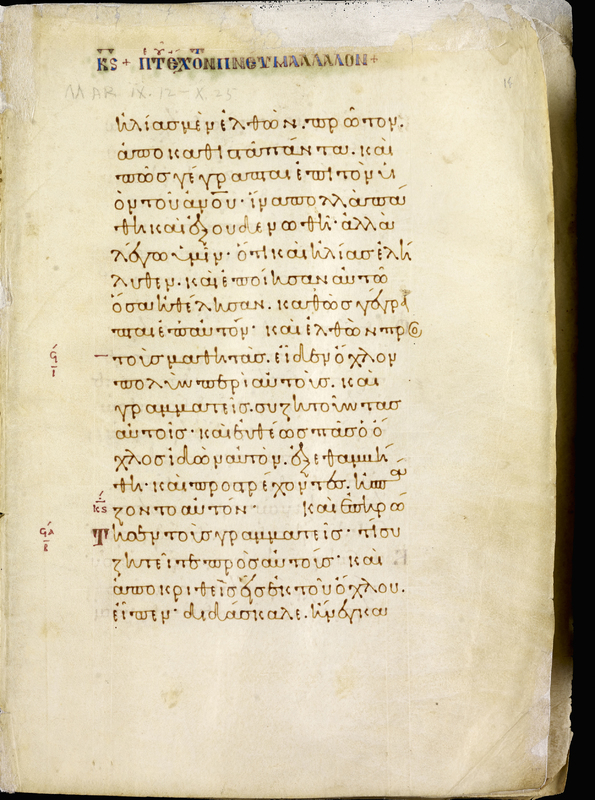 κς + ΠΤΕΧΟΝΠΝΕΥΜΑΛΛΑΛΟΝ +
MAR IX. 12 – X. 25
ἡλίας μὲν ἐλθὼν. πρῶτον.
ἀποκαθιστᾶ πάντα. καὶ
πῶς γέγραπται ἐπὶ τὸν υἱ
ὸν τοῦ ανου· ἵνα πολλὰ πά
θη καὶ ἐξουδενωθῆ· ἀλλὰ
λέγω ὑμῖν· ὅτι καὶ ἡλίας ἐλή
λυθεν. καὶ ἐποίησαν αὐτῶ
ὅσα ἠθέλησαν. καθὼς γέγρα
πται ἐπ αὐτόν· καὶ ἐλθὼν προς
τοὺς μαθητὰς. εἶδεν ὄχλον
πολὺν περὶ αὐτοὺς. καὶ
γραμματεῖς. συζητοῦντας
αὐτοῖς· καὶ εὐθέως πᾶς ὁ ὄ
χλος ἰδὼν αὐτὸν. ἐξεθαμβή
θη· καὶ προστρέχοντες. ἠσπα
ζοντο αὐτόν· καὶ ἐπηρώ
τησεν τοὺς γραμματεῖς· τί συ
ζητεῖτε πρὸς αὐτούς· καὶ
ἀποκριθεὶς εἷς ἐκ τοῦ ὄχλου.
εἶπεν· διδάσκαλε. ἤνεγκα